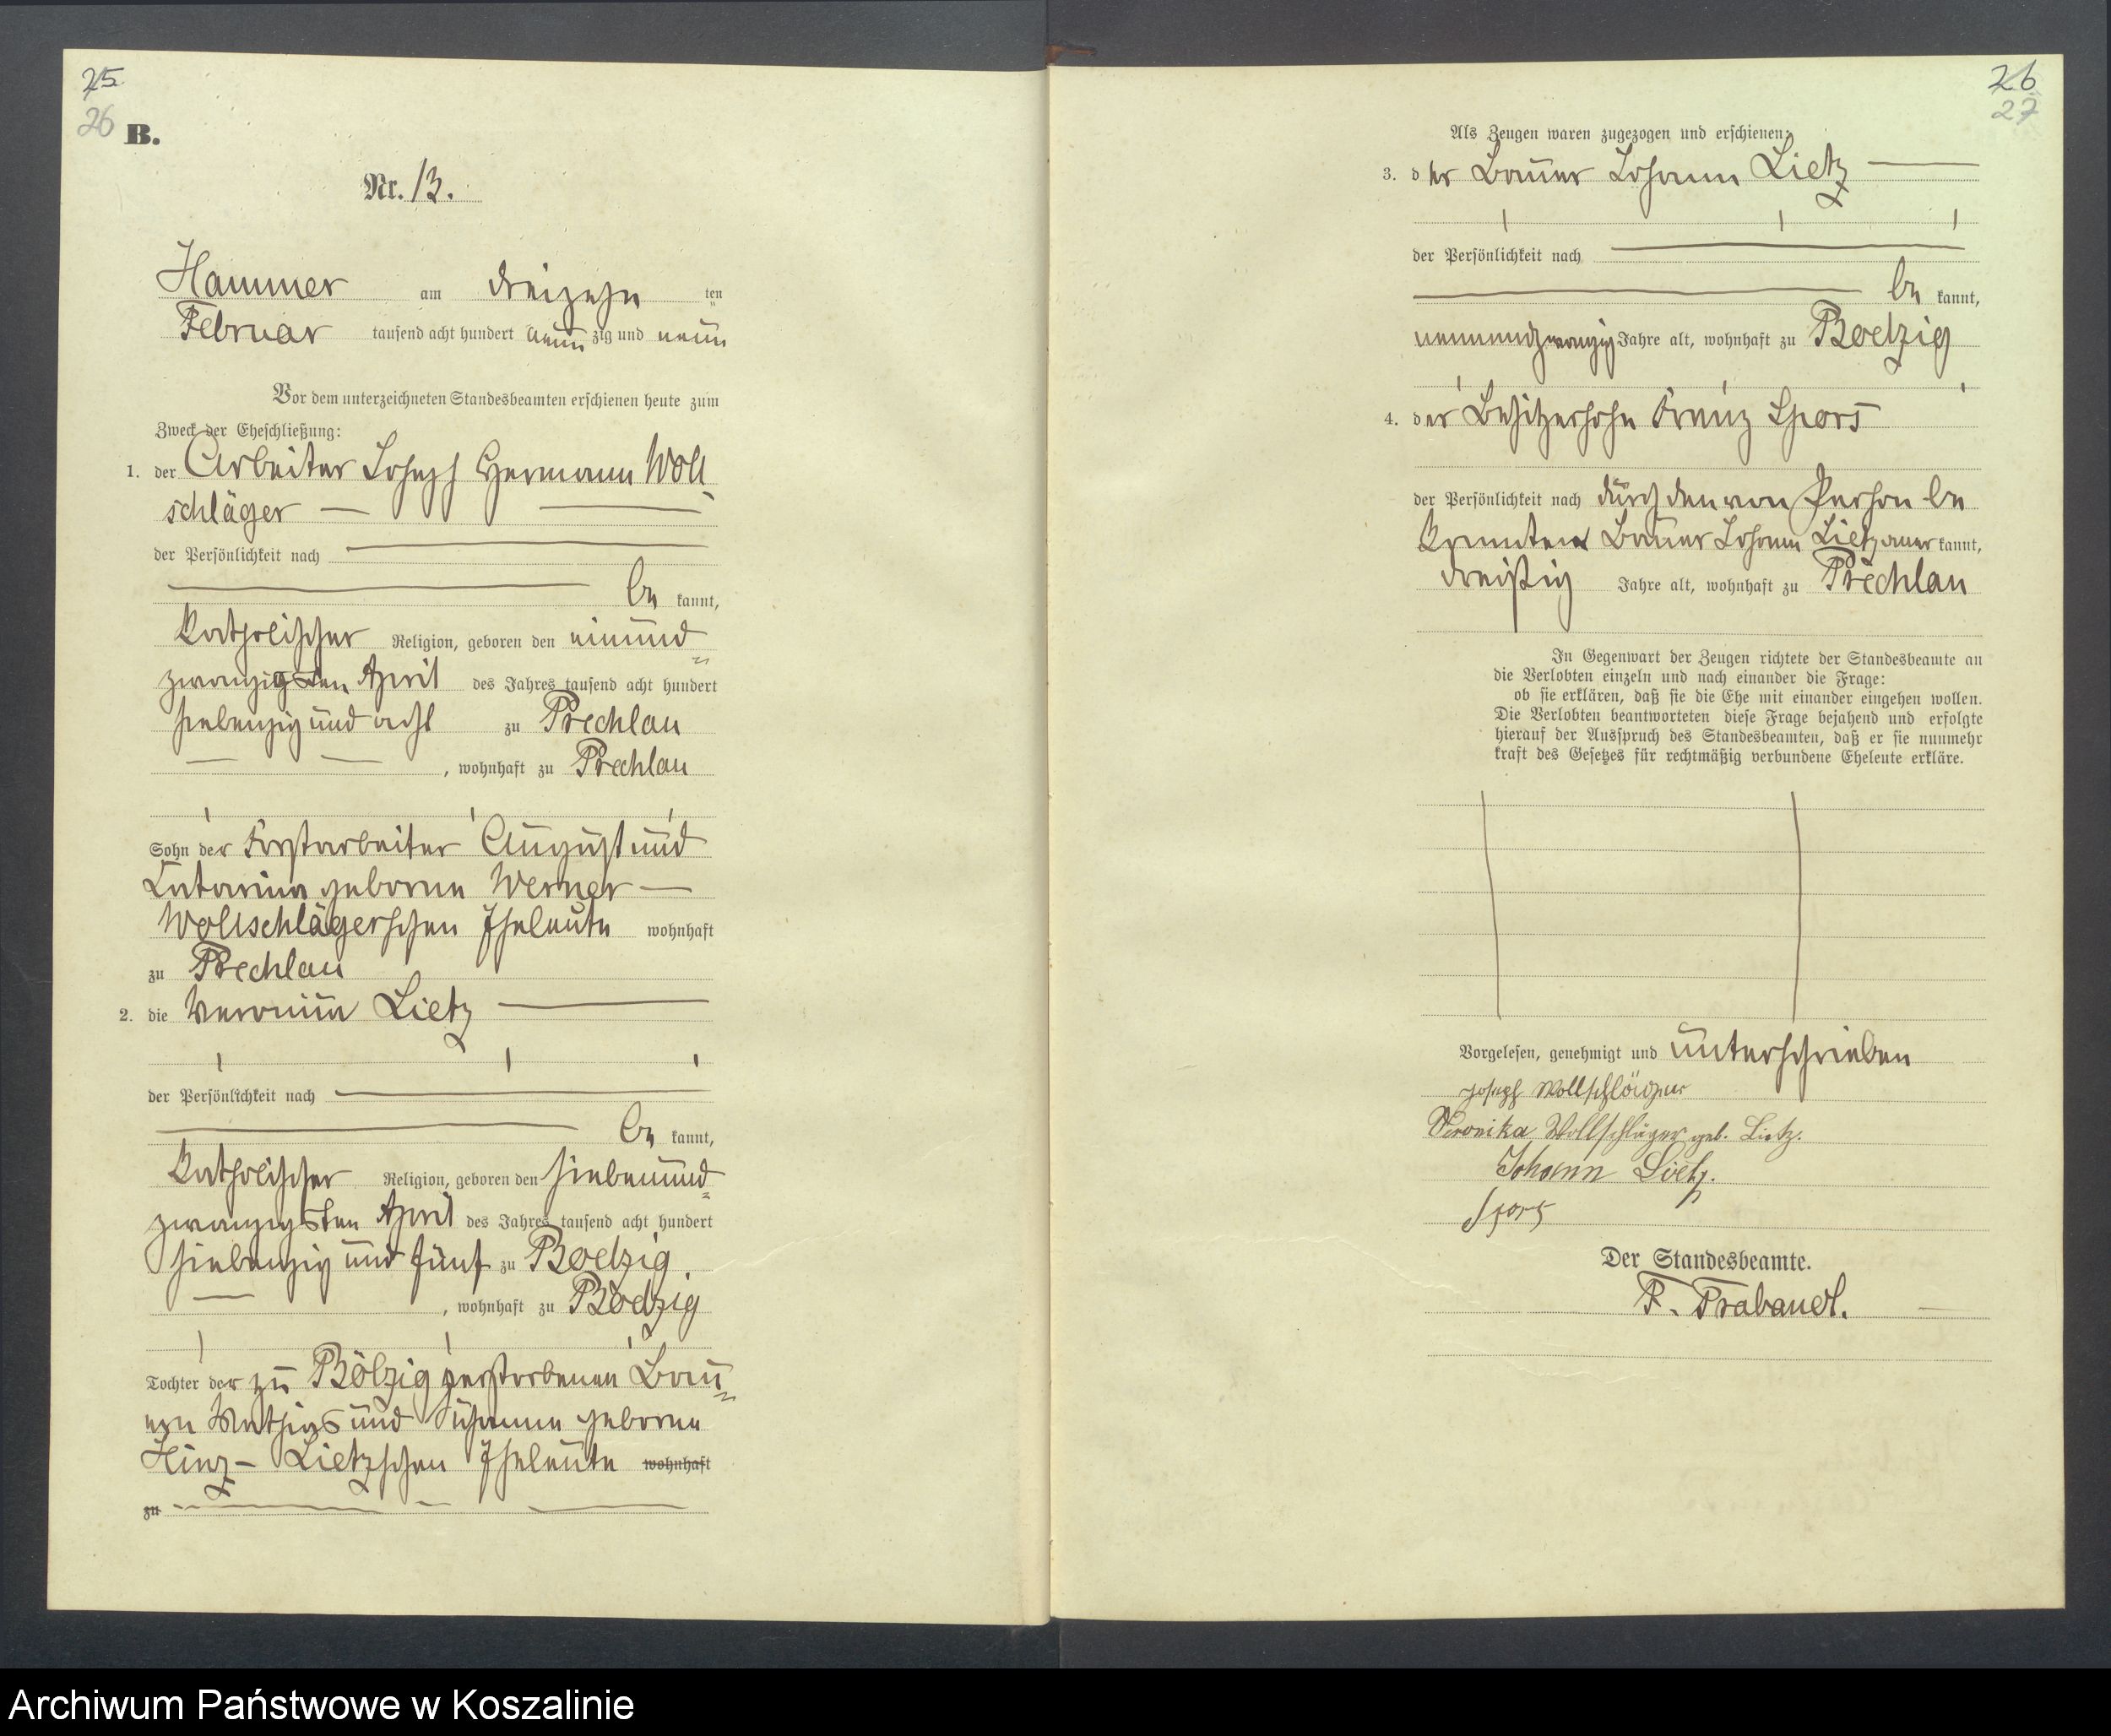 25
26
B.
Nr. 13.
Hammer am dreizehn ten
Februar tausend acht hundert neun zig und neun
Vor dem unterzeichneten Standesbeamten erschienen heute zum
Zweck der Eheschließung:
1. der Arbeiter Joseph Hermann Woll
schläger —
der Persönlichkeit nach
be kannt,
katholischer Religion, geboren den einund
zwanzigsten April des Jahres tausend acht hundert
siebenzig und acht zu Prechlau
, wohnhaft zu Prechlau
Sohn der Forstarbeiter August und
Catarina geborene Werner —
Wollschlägerschen Eheleute wohnhaft
zu Prechlau
2. die Veronika Lietz
der Persönlichkeit nach
be kannt,
katholischer Religion, geboren den siebenund
zwanzigsten April des Jahres tausend acht hundert
siebenzig und fünf zu Boelzig
, wohnhaft zu Bölzig
Tochter der zu Bölzig verstorbenen Bau
ern Mathias und Susanna geborene
Hinz – Lietzschen Eheleute wohnhaft
zu
26
27
Als Zeugen waren zugezogen und erschienen:
3. der Bauer Johann Lietz
der Persönlichkeit nach
be kannt,
neunundzwanzig Jahre alt, wohnhaft zu Boelzig
4. der Besitzersohn Franz Spors
der Persönlichkeit nach durch den von Person be
kannten Bauer Johann Lietz aner kannt,
dreißig Jahre alt, wohnhaft zu Prechlau
In Gegenwart der Zeugen richtete der Standesbeamte an
die Verlobten einzeln und nach einander die Frage:
ob sie erklären, daß sie die Ehe mit einander eingehen wollen.
Die Verlobten beantworteten diese Frage bejahend und erfolgte
hierauf der Ausspruch des Standesbeamten, daß er sie nunmehr
kraft des Gesetzes für rechtmäßig verbundene Eheleute erkläre.
Vorgelesen, genehmigt und unterschrieben
Joseph Wollschläger
Veronika Wollschläger geb. Lietz.
Johann Lietz.
Spors
Der Standesbeamte.
F. Trabandt.
Archiwum Państwowe w Koszalinie